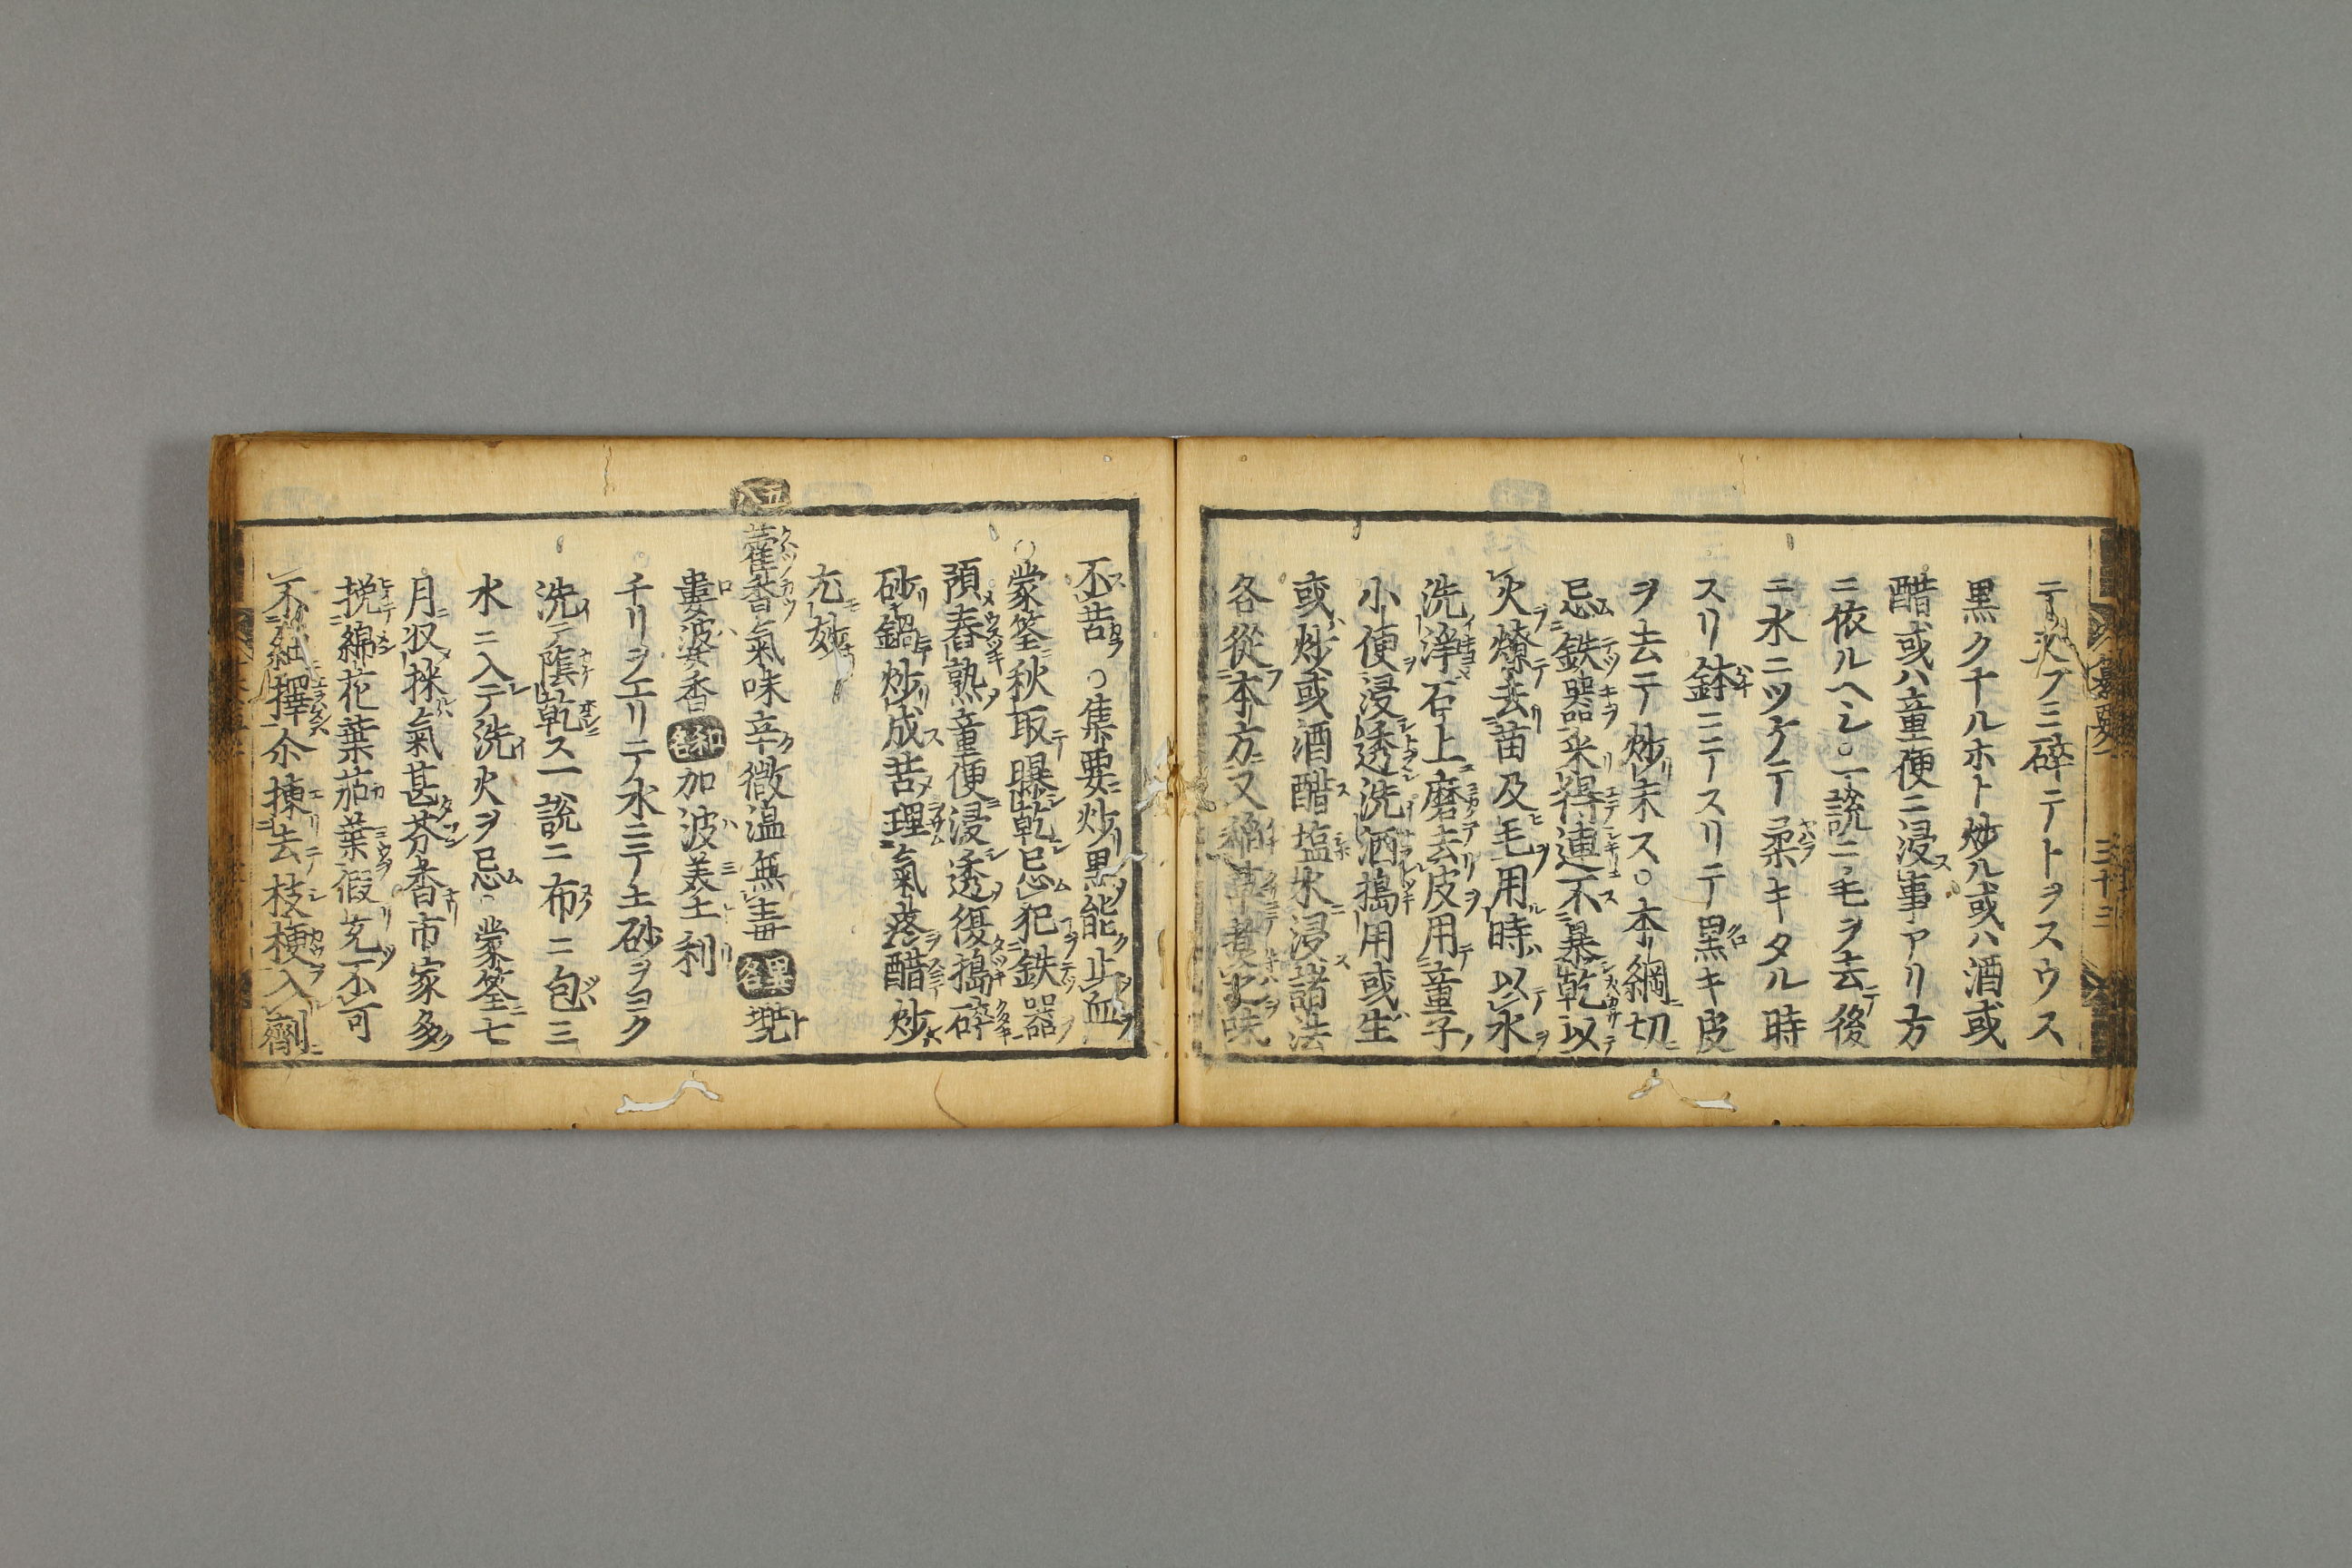 テ火ブ三碎ーテトヲスウス
黒クナルホト炒ル或ハ酒或
醋或ハ童便ニ浸事アリ方
ニ依ルヘシ○一説ニ毛ヲ去テ後
ニ水ニツケノテー柔キタル時
スリ鉢ニテースリテ黒キ皮
ヲ去テ炒末ス○本綱切
忌鉄器采得連不暴乾以
火燎去苗及毛用時以水
洗浄石上磨去皮用童子
小便浸透洗洒搗用或生
或炒或酒醋塩水浸諸法
各從本方又稲草煮之味
三十三
不苦○集要炒黒能止血
○蒙筌秋取曝乾忌犯鉄器
預舂熟童便浸透復搗碎
砂鍋炒成苦理氣落醋炒
尤妙
五八
藿香氣味辛微温無毒異名兜
婁婆香和名加波美土利
チリヲエリニテ水ニテ土砂ヲヨク
洗テ蔭乾ス一説ニ布ニ包三
水ニ入テ洗火ヲ忌○蒙筌七
月収採氣甚芬香市家多
挽綿花葉茄葉假充不可
不細擇余揀去枝梗入劑